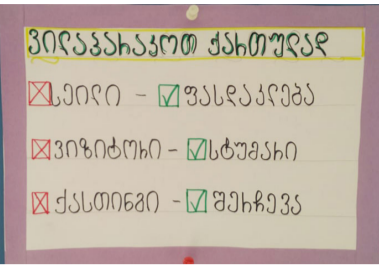 ვილაპარაკოთ ქართულად
☒ სეილი - ☑ ფასდაკლება
☒ ვიზიტორი - ☑ სტუმარი
☒ ქასთინგი - ☑ შერჩევა